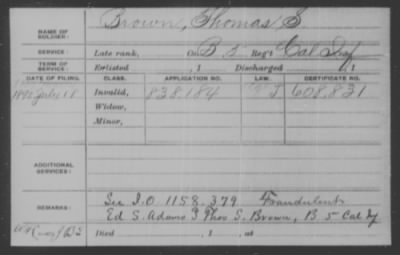 NAME OF SOLDIER: Brown, Thomas S
SERVICE: Late rank, Co. B 5 Reg't Cal Inf
TERM OF SERVICE: Enlisted , 1 Discharged , 1
DATE OF FILING. CLASS. APPLICATION NO. LAW. CERTIFICATE NO.
July 18 Invalid, 838.184 608.831
Widow,
Minor,
ADDITIONAL SERVICES:
REMARKS: See I.O 1158.379 Fraudulent
Ed S. Adams Thos S. Brown, B. 5 Cal Inf
Died , 1 , at